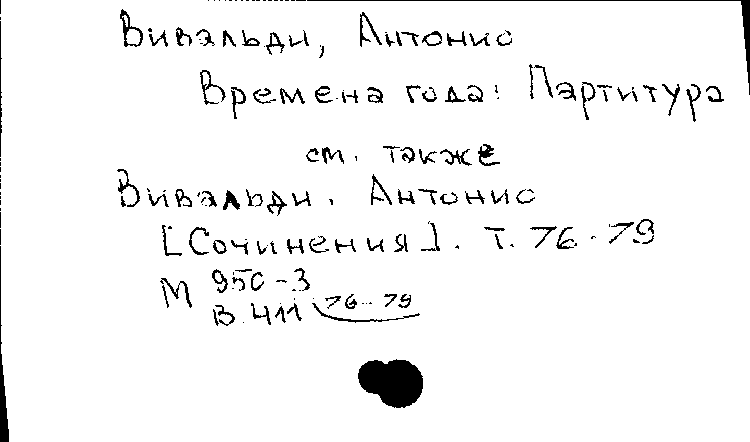 Вивальди, Антонио
Времена года: Партитура
см. также
Вивальди, Антонио
[Сочинения]. Т. 76-79
М 950-3
В 411 76-79